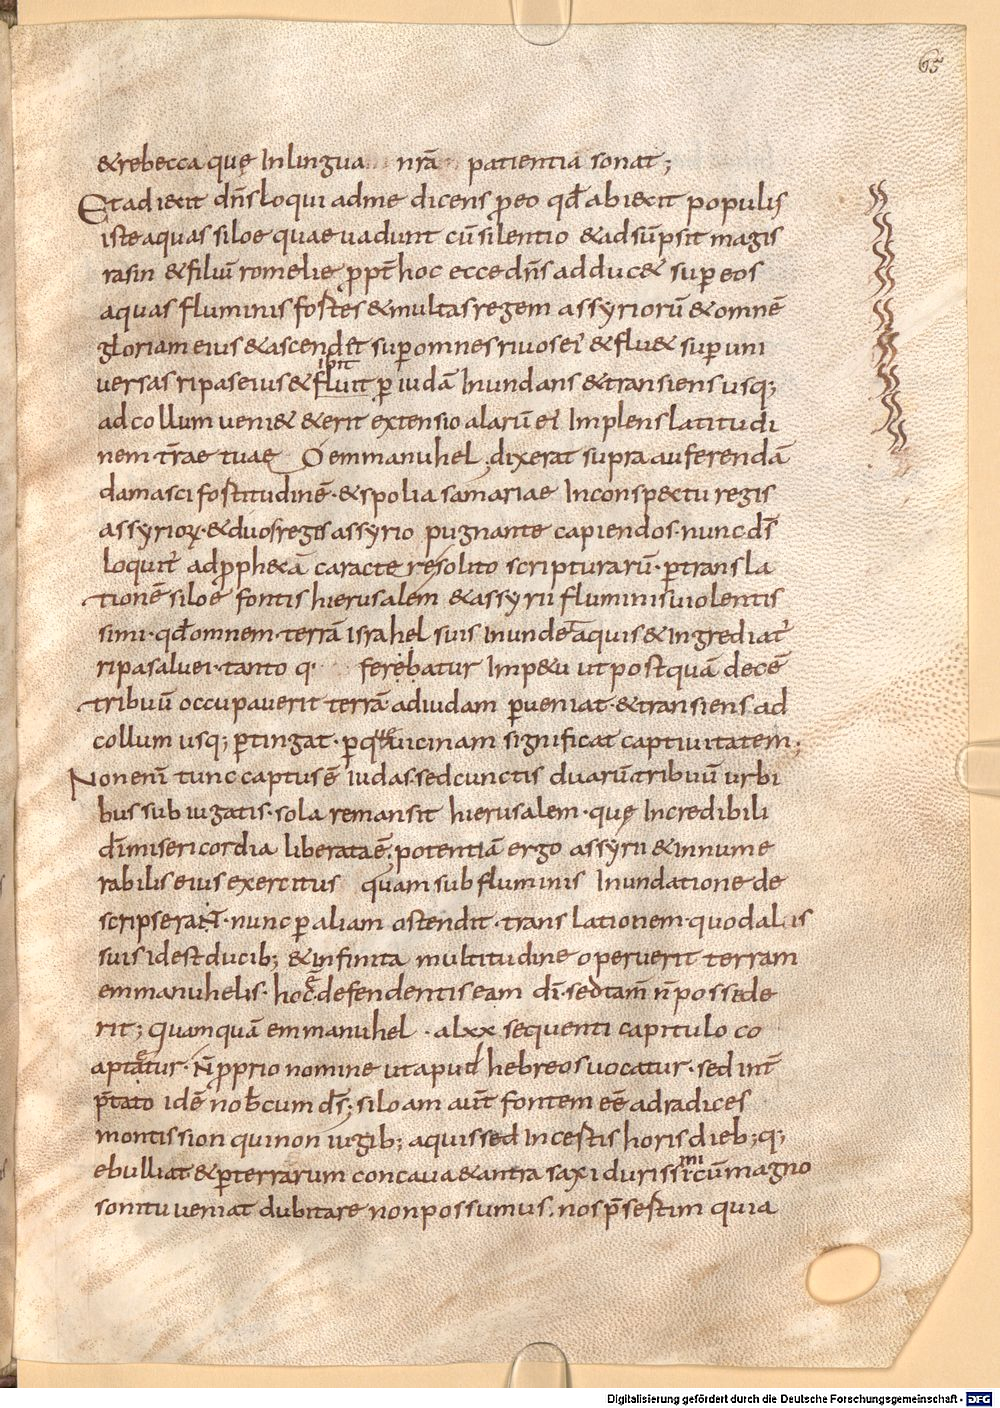 65
&rebecca quę In lingua nr̄ā patientiā sonat;
Et adiecit dn̄s loqui ad me dicens p̱ eo qđ abiecit populis
iste aquas siloe quae uadunt cū silentio & adsūpsit magis
rasin & filiū romelie p̱pt̄ hoc ecce dn̄s adduc& sup eos
aquas fluminis fortes & multas regem assyriorū & omnē
gloriam eius & ascendet sup omnes riuos ei' & flu& sup uni
ibit
uersas ripas eius & fluit p̱ iudā Inundans & transiens usq;
ad collum ueni& & erit extensio alarū ei' Implens latitudi
nem tr̄ae tuae O emmanuhel, dixerat supra auferendā
damasci fortitudinē· & spolia samariae In conspectu regis
assyrioꝝ· & duos reges assyrio pugnante capiendos· nunc dn̄s
loquit' ad p̱ph&ā caractere solito scripturarū· p̱ transla
tionē siloe fontis hierusalem & assyrii fluminis uiolentis
simi· qđ omnem terrā israhel suis inund& aquis & ingrediat'
ripas aluei· tanto q· ferebatur Imp&u ut postquā decē
tribuū occupauerit terrā ad iudam p̱ueniat· & transiens ad
collum usq; p̱tingat· p̱ q̄ uicinam significat captiuitatem;
Non eni' tunc captus ē iudas· sed cunctis duarū tribuū urbi
bus subiugatis· sola remansit hierusalem· quę Incredibili
d̄i misericordia liberata ē; potentiā ergo assyrii & innume
rabilis eius exercitus quam sub fluminis Inundatione de
scripserant· nunc p̱ aliam ostendit translationem· quod alis
suis id est ducib; & infinita multitudine operuerit terram
emmanuhelis· hoc ē defendentis eam d̄i· sed tam̄ n̄ possede
rit; quamquā emmanuhel · a lxx sequenti capitulo co
aptetur· n̄ p̱prio nomine ut apud hebreos uocatur· sed int̄
p̱tato idē nobcum ds; siloam aut̄ fontem eē ad radices
montis sion qui non iugib; aquis sed Incertis horis dieb; q;
ebulliat & p̱ terrarum concaua & antra saxi durissimi cū magno
sonitu ueniat dubitare non possumus; nos p̄sertim quia
Digitalisierung gefördert durch die Deutsche Forschungsgemeinschaft - DFG